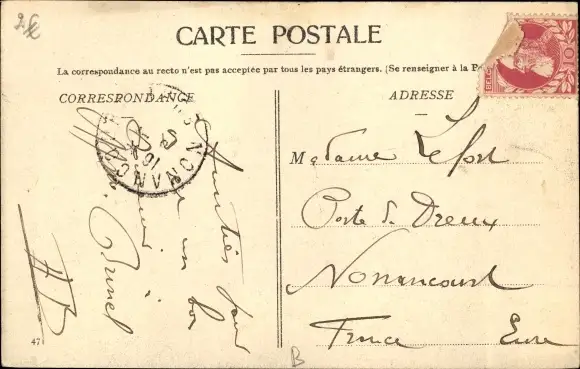 2€
CARTE POSTALE
La correspondance au recto n'est pas acceptée par tous les pays étrangers. (Se renseigner à la
CORRESPONDANCE
ADRESSE
NONANCOURT
Amitiés
un bon
Brunel
Madame Lefort
Porte de Dreux
Nonancourt
France Eure
10
47
B